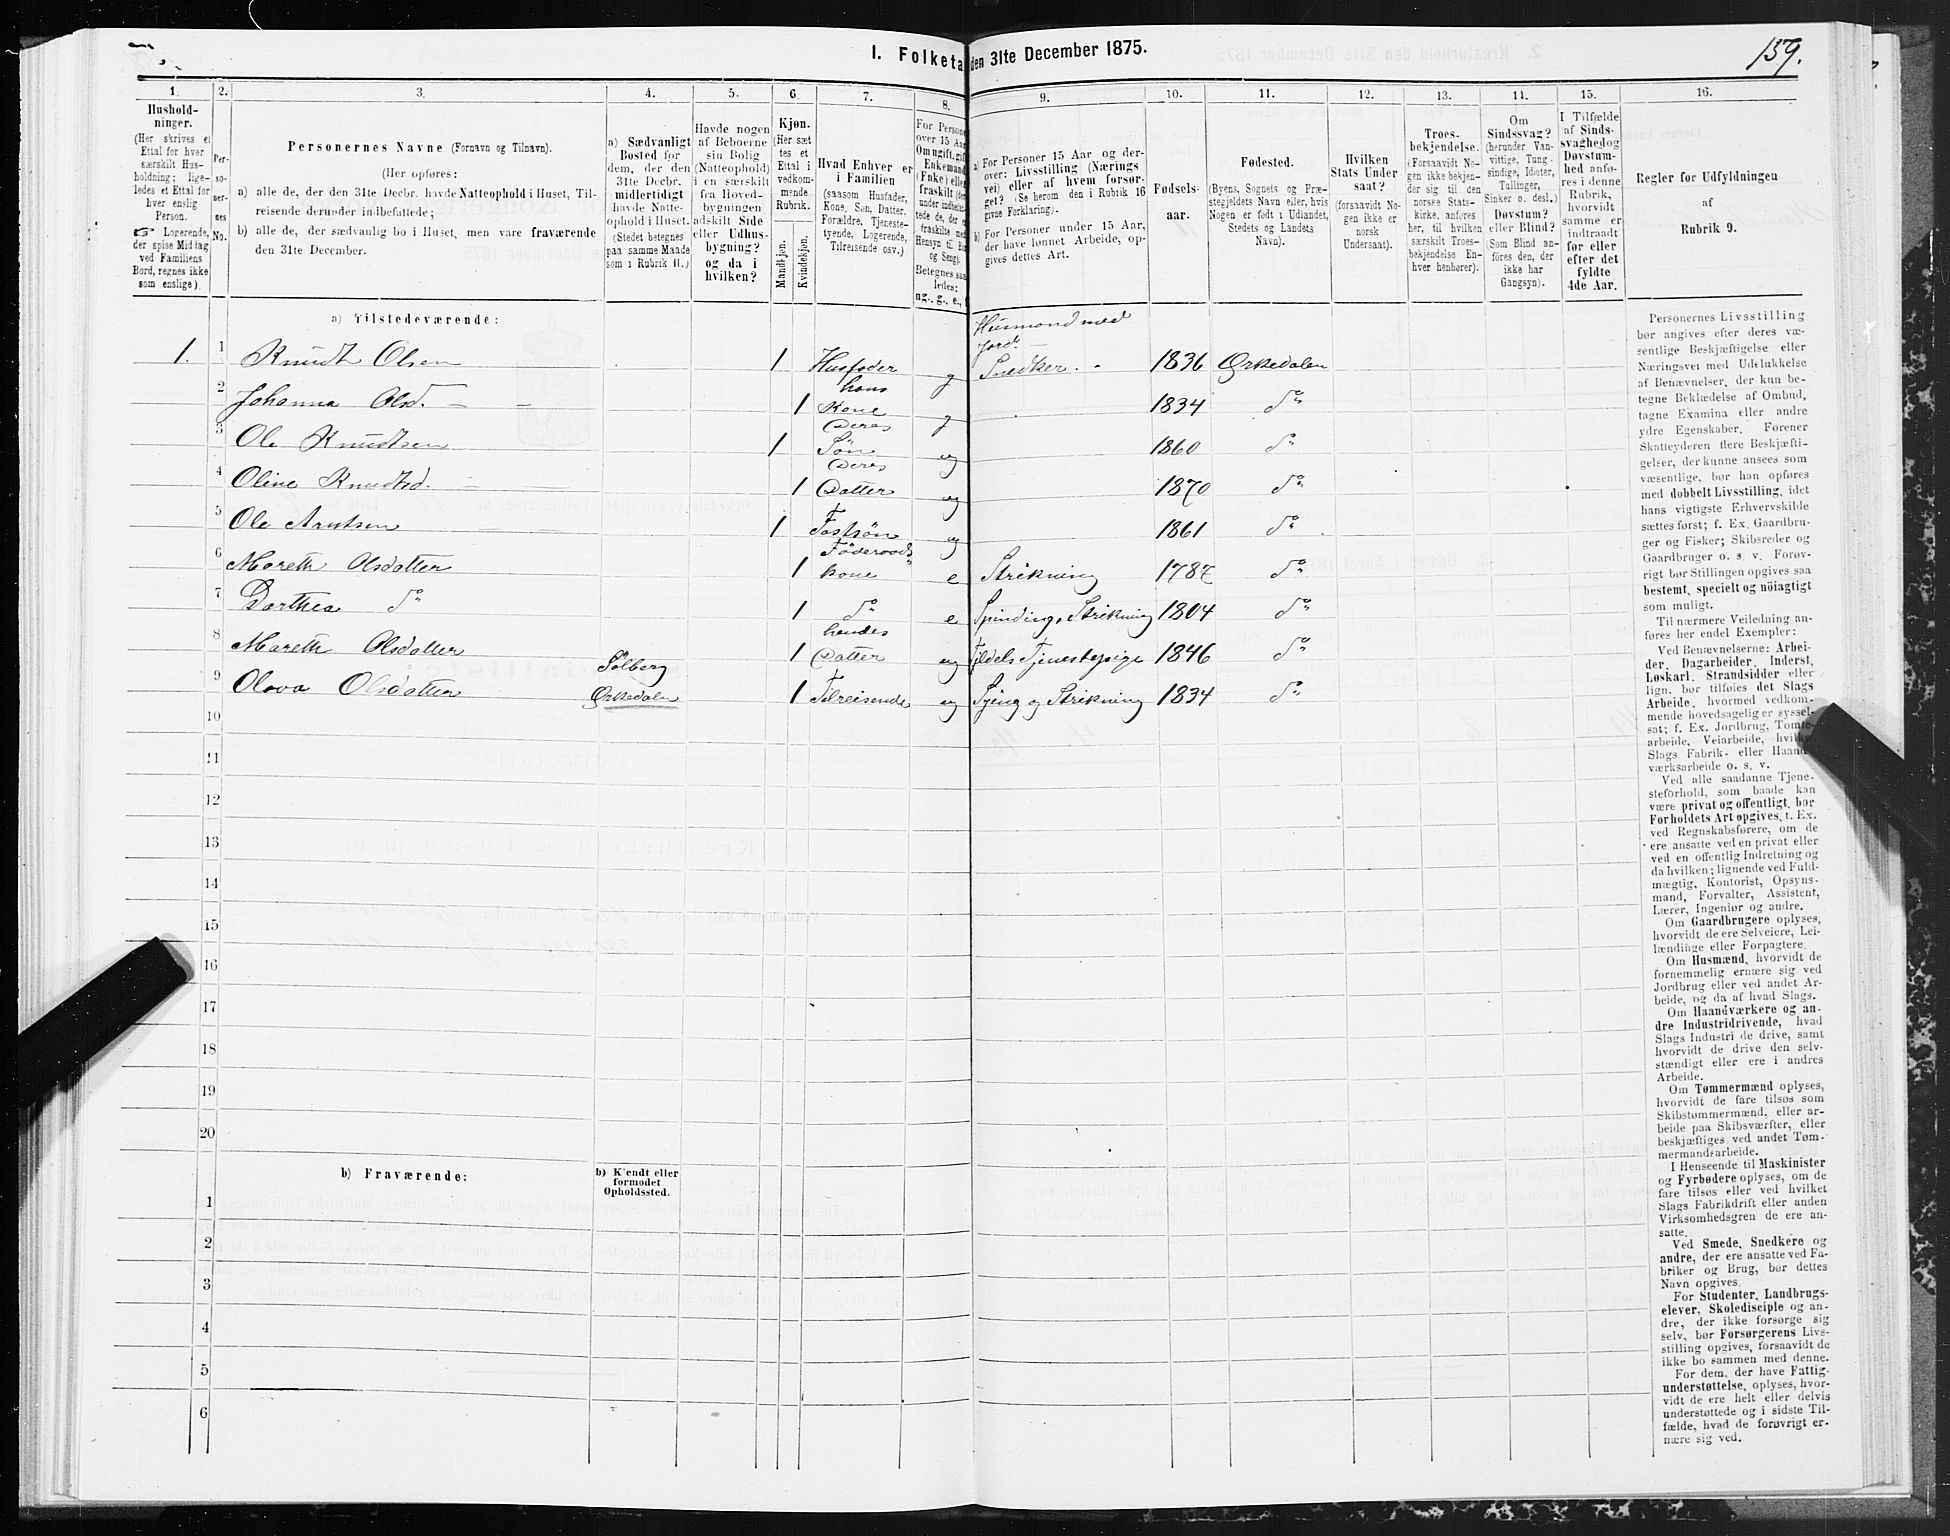 I. Folketa den 31te December 1875.
159.
1. 2. 3. 4. 5. 6. 7. 8. 9. 10. 11. 12. 13. 14. 15. 16.
Hushold-
ninger.
(Her skrives et
Ettal for hver
særskilt Hus-
holdning; lige-
ledes et Ettal for
hver enslig
Person.
☞ Logerende,
der spise Middag
ved Familiens
Bord, regnes ikke
som enslige).
Per-
so-
ner-
nes
No.
Personernes Navne (Fornavn og Tilnavn).
(Her opføres:
a) alle de, der den 31te Decbr. havde Natteophold i Huset, Til-
reisende derunder indbefattede;
b) alle de, der sædvanlig bo i Huset, men vare fraværende
den 31te December.
a) Sædvanligt
Bosted for
dem, der den
31te Decbr.
midlertidigt
havde Natte-
ophold i Huset.
(Stedet betegnes
paa samme Maade
som i Rubrik 11.)
Havde nogen
af Beboerne
sin Bolig
(Natteophold)
i en særskilt
fra Hoved-
bygningen
adskilt Side
eller Udhus-
bygning?
og da i
hvilken?
Kjøn.
(Her sæt-
tes et
Ettal i
vedkom-
mende
Rubrik.
Mandkjøn.
Kvindekjøn.
Hvad Enhver er
i Familien
(saasom Husfader,
Kone, Søn, Datter,
Forældre, Tjeneste-
tyende, Logerende,
Tilreisende osv.)
For Persone
over 15 Aar
Om ugift, gift
Enkemand
(Enke) eller
fraskilt
under indbefat-
tede de, der e
fraskilte med
Hensyn til Bo
og Seng).
Betegnes saa
ledes:
ug., g., e.,
a) For Personer 15 Aar og der-
over: Livsstilling (Nærings
vei) eller af hvem forsør-
get? (Se herom den i Rubrik 16
givne Forklaring).
b) For Personer under 15 Aar,
der have lønnet Arbeide, op-
gives dettes Art.
Fødsels-
aar.
Fødested.
(Byens, Sognets og Præ-
stegjeldets Navn eller, hvis
Nogen er født i Udlandet,
Stedets og Landets
Navn).
Hvilken
Stats Under
saat?
(forsaavidt No-
gen ikke er
norsk
Undersaat).
Troes-
bekjendelse.
(Forsaavidt No-
gen ikke bekjen-
der sig til den
norske Stats-
kirke, anføres
her, til hvilken
særskilt Troes-
bekjendelse En-
hver henhører).
Om
Sindssvag?
(herunder Van-
vittige, Tung-
sindige, Idioter,
Tullinger,
Sinker o. desl.)
Døvstum?
eller Blind?
(Som Blind an-
føres den, der
ikke har
Gangsyn).
I Tilfælde
af Sinds-
svaghed og
Døvstum-
hed anfø-
res i denne
Rubrik,
hvorvidt
samme er
indtraadt
før eller
efter det
fyldte
4de Aar.
Regler for Udfyldningen
af
Rubrik 9.
a) Tilstedeværende:
Husmand med
Jord.
1. 1 Knudt Olsen 1 Husfader g Snedker 1836 Ørkedalen
2 Johanna Olsd. 1 hans Kone g 1834 do
3 Ole Knudtsen 1 Deres Søn ug 1860 do
4 Oline Knudtsd. 1 Deres Datter ug 1870 do
5 Ole Arntsen 1 Fostsøn ug 1861 do
6 Mareth Olsdatter 1 Føderaads kone e Strikning 1787 do
7 Dorthea do 1 do e Spinding, Strikning 1804 do
8 Mareth Olsdatter 1 hendes Datter ug Tildels Tjenestepige 1846 do
9 Olava Olsdatter Solberg Ørkedalen 1 Tilreisende ug Sying og Strikning 1834 do
10
11
12
13
14
15
16
17
18
19
20
b) Fraværende:
b) Kjendt eller
formodet
Opholdssted.
1
2
3
4
5
6
Personernes Livsstilling
bør angives efter deres væ-
sentlige Beskjæftigelse eller
Næringsvei med Udelukkelse
af Benævnelser, der kun be-
tegne Beklædelse af Ombud,
tagne Examina eller andre
ydre Egenskaber. Forener
Skatteyderen flere Beskjæfti-
gelser, der kunne ansees som
væsentlige, bør han opføres
med dobbelt Livsstilling, idet
hans vigtigste Erhvervskilde
sættes først; f. Ex. Gaardbru-
ger og Fisker; Skibsreder og
Gaardbruger o. s. v. Forøv-
rigt bør Stillingen opgives saa
bestemt, specielt og nöiagtigt
som muligt.
Til nærmere Veiledning an-
føres her endel Exempler:
Ved Benævnelserne: Arbei-
der, Dagarbeider, Inderst,
Løskarl, Strandsidder eller
lign. bør tilføies det Slags
Arbeide, hvormed vedkom-
mende hovedsagelig er syssel-
sat; f. Ex. Jordbrug, Tomte-
arbeide, Veiarbeide, hvilke
Slags Fabrik- eller Haand-
værksarbeide o. s. v.
Ved alle saadanne Tjene-
steforhold, som baade kan
være privat og offentligt, bør
Forholdets Art opgives, t. Ex.
ved Regnskabsførere, om de
ere ansatte ved en privat eller
ved en offentlig Indretning og
da hvilken; lignende ved Fuld-
mægtig, Kontorist, Opsyns-
mand, Forvalter, Assistent,
Lærer, Ingeniør og andre.
Om Gaardbrugere oplyses,
hvorvidt de ere Selveiere, Lei-
lændinge eller Forpagtere.
Om Husmænd, hvorvidt de
fornemmelig ernære sig ved
Jordbrug eller ved andet Ar-
beide, og da af hvad Slags.
Om Haandværkere og an-
dre Industridrivende, hvad
Slags Industri de drive, samt
hvorvidt de drive den selv-
stændigt eller ere i andres
Arbeide.
Om Tømmermænd oplyses,
hvorvidt de fare tilsøs som
Skibstømmermænd, eller ar-
beide paa Skibsværfter, eller
beskjæftiges ved andet Tøm-
mermandsarbeide.
I Henseende til Maskinister
og Fyrbødere oplyses, om de
fare tilsøs eller ved hvilket
Slags Fabrikdrift eller anden
Virksomhedsgren de ere an-
satte.
Ved Smede, Snedkere og
andre, der ere ansatte ved Fa-
briker og Brug, bør dettes
Navn opgives.
For Studenter, Landbrugs-
elever, Skoledisciple og an-
dre, der ikke forsørge sig
selv, bør Forsørgerens Livs-
stilling opgives, forsaavidt de
ikke bo sammen med denne.
For dem, der have Fattig-
understøttelse, oplyses, hvor-
vidt de ere helt eller delvis
understøttede og i sidste Til-
fælde, hvad de forøvrigt er-
nære sig ved.